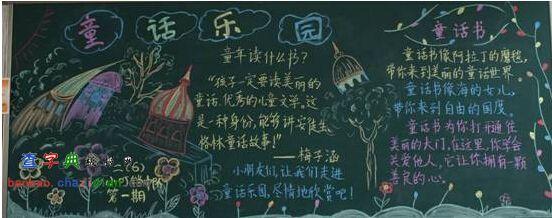 童话乐园
童年读什么书?
“孩子一定要读美丽的
童话,优秀的儿童文学。这
是一种身份,能够讲安徒生、
格林童话故事!”
——梅子涵
小朋友们,让我们走进
童话乐园,尽情地欣赏吧!
童话书
童话书像阿拉丁的魔毯,
带你来到美丽的童话世界。
童话书像海的女儿,
带你来到自由的国度。
童话书为你打开通往
美丽的大门,在这里,你学会
关爱他人,它让你拥有一颗
善良的心。
查字典
第一期